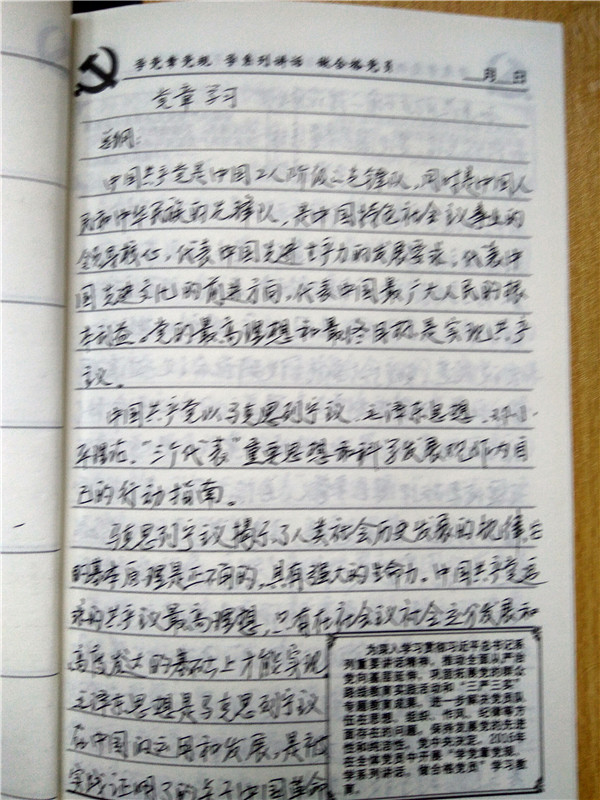 学党章党规 学系列讲话 做合格党员
月 日
党章学习
总纲:
中国共产党是中国工人阶级的先锋队,同时是中国人
民和中华民族的先锋队,是中国特色社会议事业的
领导核心,代表中国先进生产力的发展要求,代表中
国先进文化的前进方向,代表中国最广大人民的根
本利益。党的最高理想和最终目标是实现共产
议。
中国共产党以马克思列宁议、毛泽东思想、邓小
平理论、“三个代表”重要思想和科学发展观作为自
己的行动指南。
马克思列宁议揭示了人类社会历史发展的规律,它
的基本原理是正确的,具有强大的生命力。中国共产党追
求的共产议最高理想,只有在社会议社会充分发展和
高度发达的基础上才能实现
毛泽东思想是马克思列宁议
在中国的运用和发展,是被
实践证明了的关于中国革命
为深入学习贯彻习近平总书记系
列重要讲话精神,推动全面从严治
党向基层延伸,巩固拓展党的群众
路线教育实践活动和“三严三实”
专题教育成果,进一步解决党员队
伍在思想、组织、作风、纪律等方
面存在的问题,保持发展党的先进
性和纯洁性,党中央决定,2016年
在全体党员中开展“学党章党规、
学系列讲话,做合格党员”学习教
育。